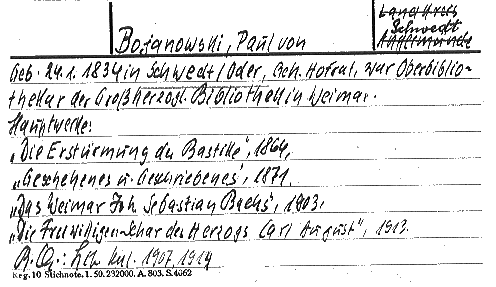 Landkreis
Schwedt
Angermünde
Bojanowski, Paul von
Geb. 24.1.1834 in Schwedt/Oder, Geh. Hofrat, war Oberbiblio-
thekar der Großherzogl. Bibliothek in Weimar.
Hauptwerke:
„Die Erstürmung der Bastille", 1864,
„Geschehenes u. Geschriebenes", 1871,
„Das Weimar Joh. Sebastian Bachs", 1903.
„Die Freiwilligen-Schar des Herzogs Carl August", 1913.
B.Qu.: 1907, 1914
Reg. 10 Stichnote. 1. 50. 232000. A. 803. S. 4062